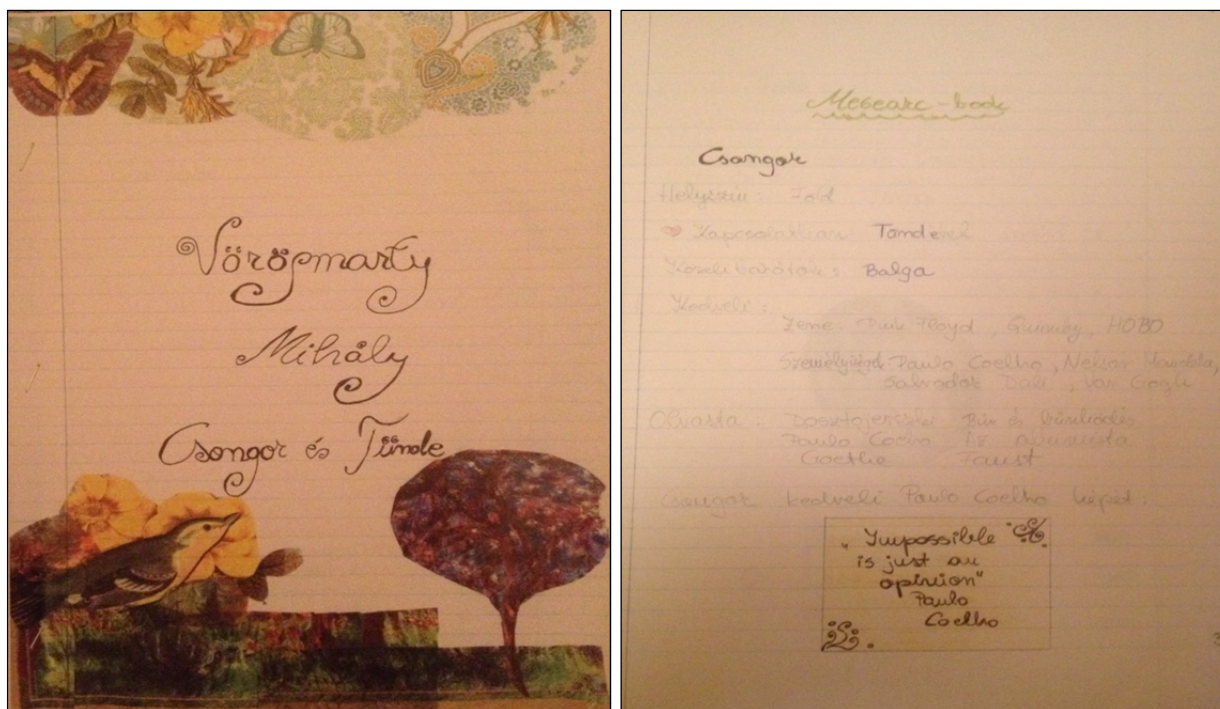 Vörösmarty
Mihály
Csongor és Tünde
Mesearc-book
Csongor
Helyszín: Föld
Kapcsolatban Tündével
Közeli barátok: Balga
Kedveli:
Zene: Pink Floyd, Quimby, HOBO
Személyiségek: Paulo Coelho, Nelson Mandela,
Salvador Dali, Van Gogh
Olvasta: Dosztojevszkij Bűn és bűnhődés
Paulo Coelho Az alkimista
Goethe Faust
Csongor kedveli Paulo Coelho képét:
„Impossible
is just an
opinion"
Paulo
Coelho
3